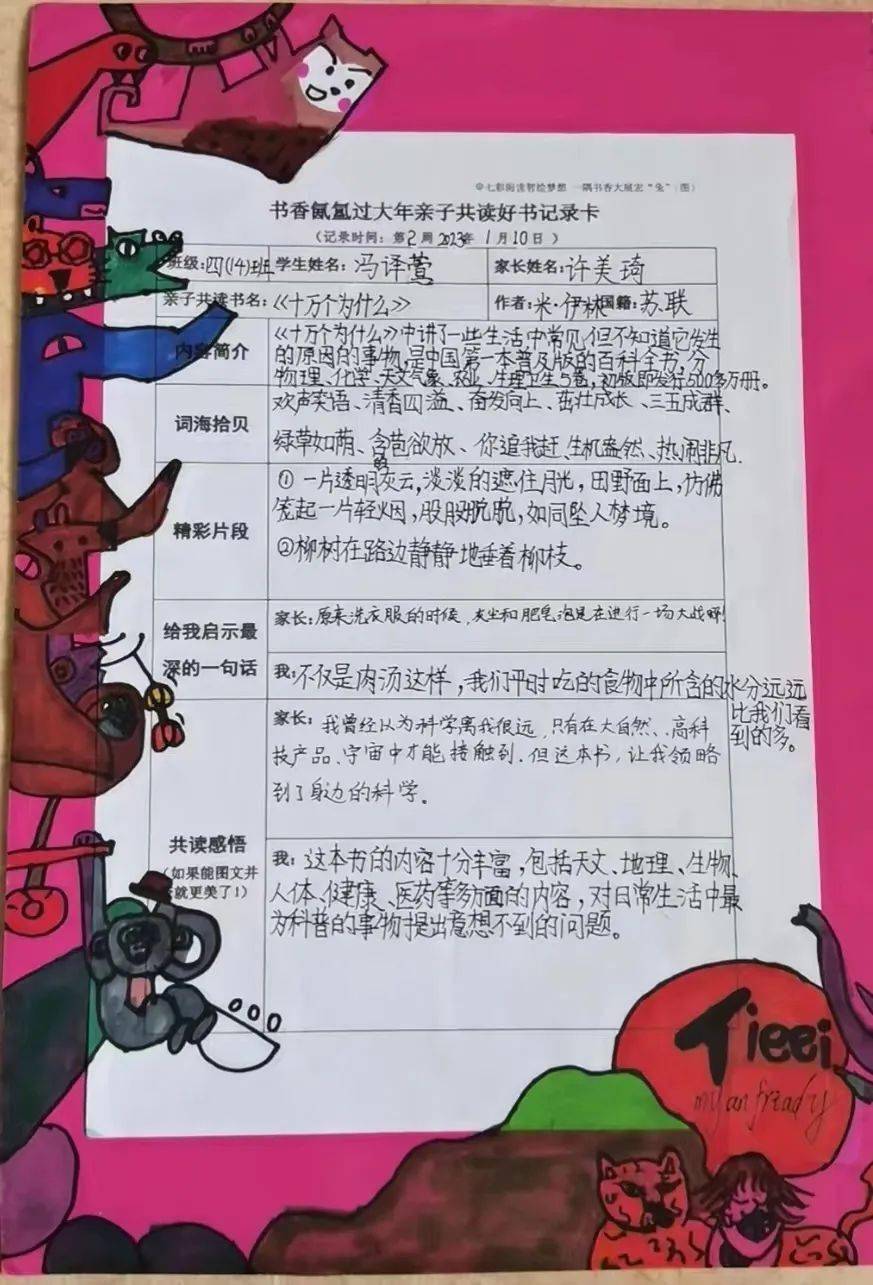 @七彩阅读智绘梦想 一隅书香大展宏“兔”(图)
书香氤氲过大年亲子共读好书记录卡
（记录时间：第2周 2023年 1月10日 ）
班级：四(14)班 学生姓名：冯译萱 家长姓名：许美琦
亲子共读书名：《十万个为什么》 作者：米·伊林 国籍：苏联
内容简介
《十万个为什么》中讲了一些生活中常见但不知道它发生
的原因的事物，是中国第一本普及版的百科全书，分
物理、化学、天文气象、农业、生理卫生5卷，初版即发行500多万册。
词海拾贝
欢声笑语、清香四溢、奋发向上、茁壮成长、三五成群、
绿草如荫、含苞欲放、你追我赶、生机盎然、热闹非凡.
精彩片段
① 一片透明的灰云，淡淡的遮住月光，田野面上，仿佛
笼起一片轻烟，股股脱脱，如同坠人梦境。
②柳树在路边静静地垂着柳枝。
给我启示最
深的一句话
家长：原来洗衣服的时候，灰尘和肥皂泡是在进行一场大战啊!
我：不仅是肉汤这样，我们平时吃的食物中所含的水分远远
比我们看
到的多。
共读感悟
(如果能图文并
就更美了!)
家长：我曾经以为科学离我很远，只有在大自然、高科
技产品、宇宙中才能接触到.但这本书，让我领略
到了身边的科学。
我：这本书的内容十分丰富，包括天文、地理、生物、
人体、健康、医药等多方面的内容，对日常生活中最
为科普的事物提出意想不到的问题。
Tieei
my an fready